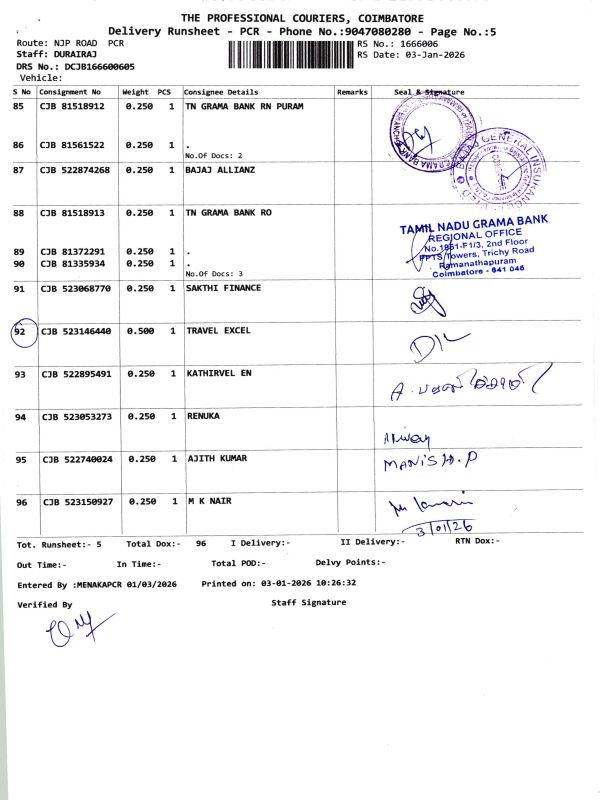 THE PROFESSIONAL COURIERS, COIMBATORE
Delivery Runsheet - PCR - Phone No.:9047080280 - Page No.:5
Route: NJP ROAD PCR RS No.: 1666006
Staff: DURAIRAJ RS Date: 03-Jan-2026
DRS No.: DCJB166600605
Vehicle:
S No Consignment No Weight PCS Consignee Details Remarks Seal & Signature
85 CJB 81518912 0.250 1 TN GRAMA BANK RN PURAM
86 CJB 81561522 0.250 1 .
No.Of Docs: 2
87 CJB 522874268 0.250 1 BAJAJ ALLIANZ
88 CJB 81518913 0.250 1 TN GRAMA BANK RO
TAMIL NADU GRAMA BANK
REGIONAL OFFICE
No.1851-F1/3, 2nd Floor
PPTS Towers, Trichy Road
Ramanathapuram
Coimbatore - 641 045
89 CJB 81372291 0.250 1 .
90 CJB 81335934 0.250 1 .
No.Of Docs: 3
91 CJB 523068770 0.250 1 SAKTHI FINANCE
92 CJB 523146440 0.500 1 TRAVEL EXCEL
93 CJB 522895491 0.250 1 KATHIRVEL EN
94 CJB 523053273 0.250 1 RENUKA
95 CJB 522740024 0.250 1 AJITH KUMAR MANISH.P
96 CJB 523150927 0.250 1 M K NAIR
3/01/26
Tot. Runsheet:- 5 Total Dox:- 96 I Delivery:- II Delivery:- RTN Dox:-
Out Time:- In Time:- Total POD:- Delvy Points:-
Entered By :MENAKAPCR 01/03/2026 Printed on: 03-01-2026 10:26:32
Verified By Staff Signature